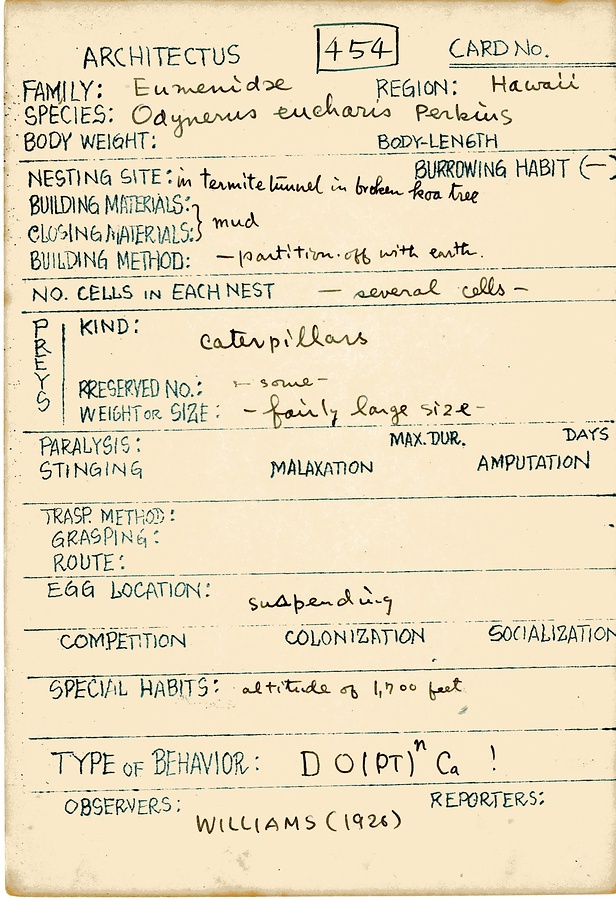 ARCHITECTUS 454 CARD NO.
FAMILY: Eumenidae REGION: Hawaii
SPECIES: Odynerus eucharis Perkins
BODY WEIGHT: BODY-LENGTH
BURROWING HABIT (—)
NESTING SITE: in termite tunnel in broken koa tree
BUILDING MATERIALS: } mud
CLOSING MATERIALS:
BUILDING METHOD: — partition-off with earth.
NO. CELLS IN EACH NEST — several cells —
PREYS
KIND: caterpillars
PRESERVED NO.: — some —
WEIGHT OR SIZE: — fairly large size —
PARALYSIS: MAX. DUR. DAYS
STINGING MALAXATION AMPUTATION
TRASP. METHOD:
GRASPING:
ROUTE:
EGG LOCATION: suspending
COMPETITION COLONIZATION SOCIALIZATION
SPECIAL HABITS: altitude of 1,700 feet
TYPE OF BEHAVIOR: D O(PT)ⁿ Ca !
OBSERVERS: REPORTERS:
WILLIAMS (1926)